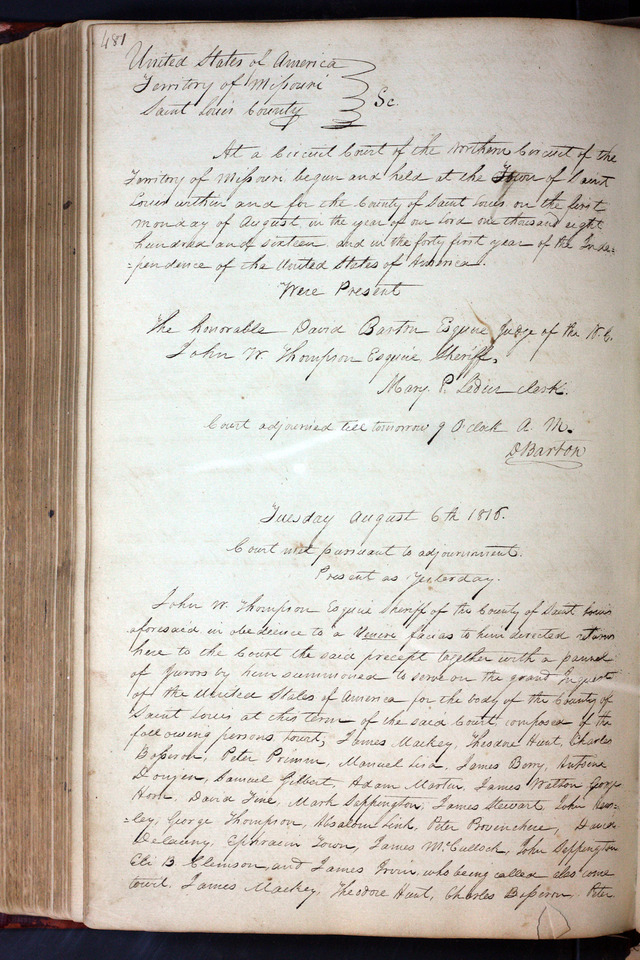 481
United States of America
Territory of Missouri
Saint Louis County } Sc.
At a Circuit Court of the Northern Circuit of the
Territory of Missouri begun and held at the Town of Saint
Louis within and for the County of Saint Louis on the first
Monday of August in the year of our Lord one thousand eight
hundred and sixteen and in the forty first year of the Inde-
=pendence of the United States of America.
Were Present
The honorable David Barton Esquire Judge of the N. C.
John W. Thompson Esquire Sheriff,
Mary P. Leduc clerk.
Court adjourned till tomorrow 9 O'clock A. M.
D Barton
Tuesday August 6th 1816.
Court met pursuant to adjournment.
Present as Yesterday.
John W. Thompson Esquire Sheriff of the County of Saint Louis
aforesaid in obedience to a Venire facias to him directed returns
here to the Court the said precept together with a pannel
of Jurors by him summoned to serve on the grand Inquest
of the United States of America for the body of the County of
Saint Louis at this term of the said Court composed of the
following persons towit, James Mackey, Theodore Hunt, Charles
Bosseron, Peter Primm, Manuel Lisa, James Berry, Antoine
Dangen, Samuel Gilbert, Adam Martin, James Walton George
Horn, David Fine, Mark Seppington, James Stewart, John Raw-
=ley, George Thompson, Absalom Link, Peter Provenchere, David
Delauny, Ephraim Town, James McCulloch, John Seppington
Eli B. Clemson, and James Irvin, who being called also come
towit, James Mackey, Theodore Hunt, Charles Bosseron, Peter